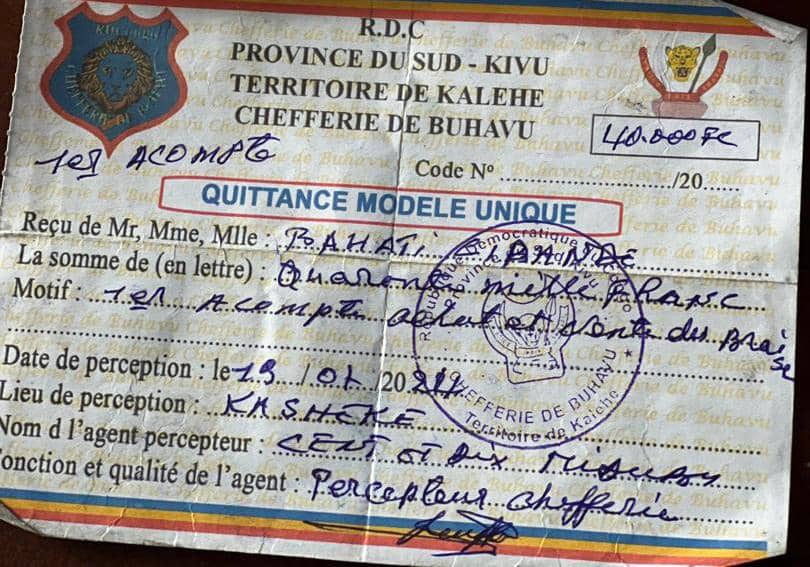 CHEFFERIE DE BUHAVU
R.D.C
PROVINCE DU SUD - KIVU
TERRITOIRE DE KALEHE
CHEFFERIE DE BUHAVU
40.000FC
1er ACOMPTE
Code N° ............/20......
QUITTANCE MODELE UNIQUE
Reçu de Mr, Mme, Mlle : BAHATI
La somme de (en lettre) : Quarante mille Franc
Motif : 1er Acompte achat et vente du Braise
Date de perception : le 19 /01 /20
Lieu de perception : KASHEKE
Nom d l'agent percepteur : CENT et Dix
Fonction et qualité de l'agent : Percepteur chefferie
République Démocratique
CHEFFERIE DE BUHAVU
Territoire de Kalehe